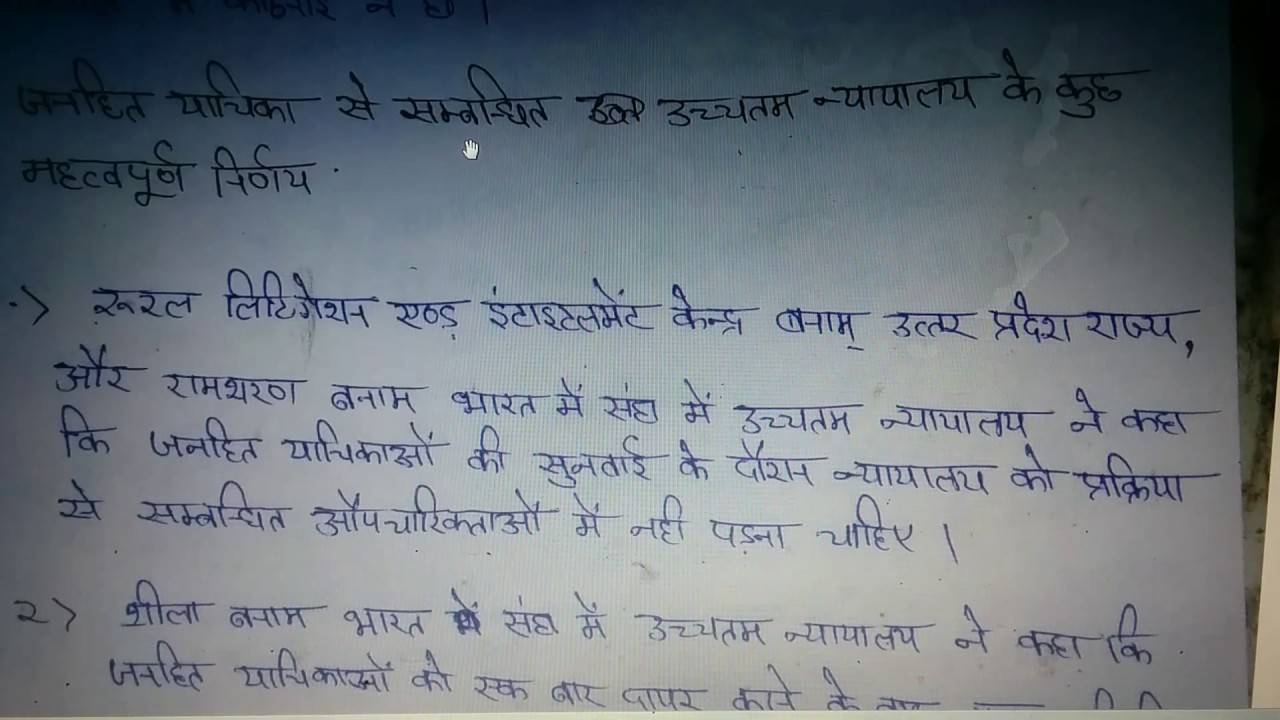 जनहित याचिका से सम्बन्धित उच्चतम न्यायालय के कुछ
महत्वपूर्ण निर्णय
रूरल लिटिगेशन एण्ड इंटाइटलमेंट केन्द्र बनाम् उत्तर प्रदेश राज्य,
और रामशरण बनाम भारत में संघ में उच्चतम न्यायालय ने कहा
कि जनहित याचिकाओं की सुनवाई के दौरान न्यायालय को प्रक्रिया
से सम्बन्धित औपचारिकताओं में नही पड़ना चाहिए ।
२> शीला बनाम भारत में संघ में उच्चतम न्यायालय ने कहा कि
जनहित याचिकाओं को एक बार दायर करने के